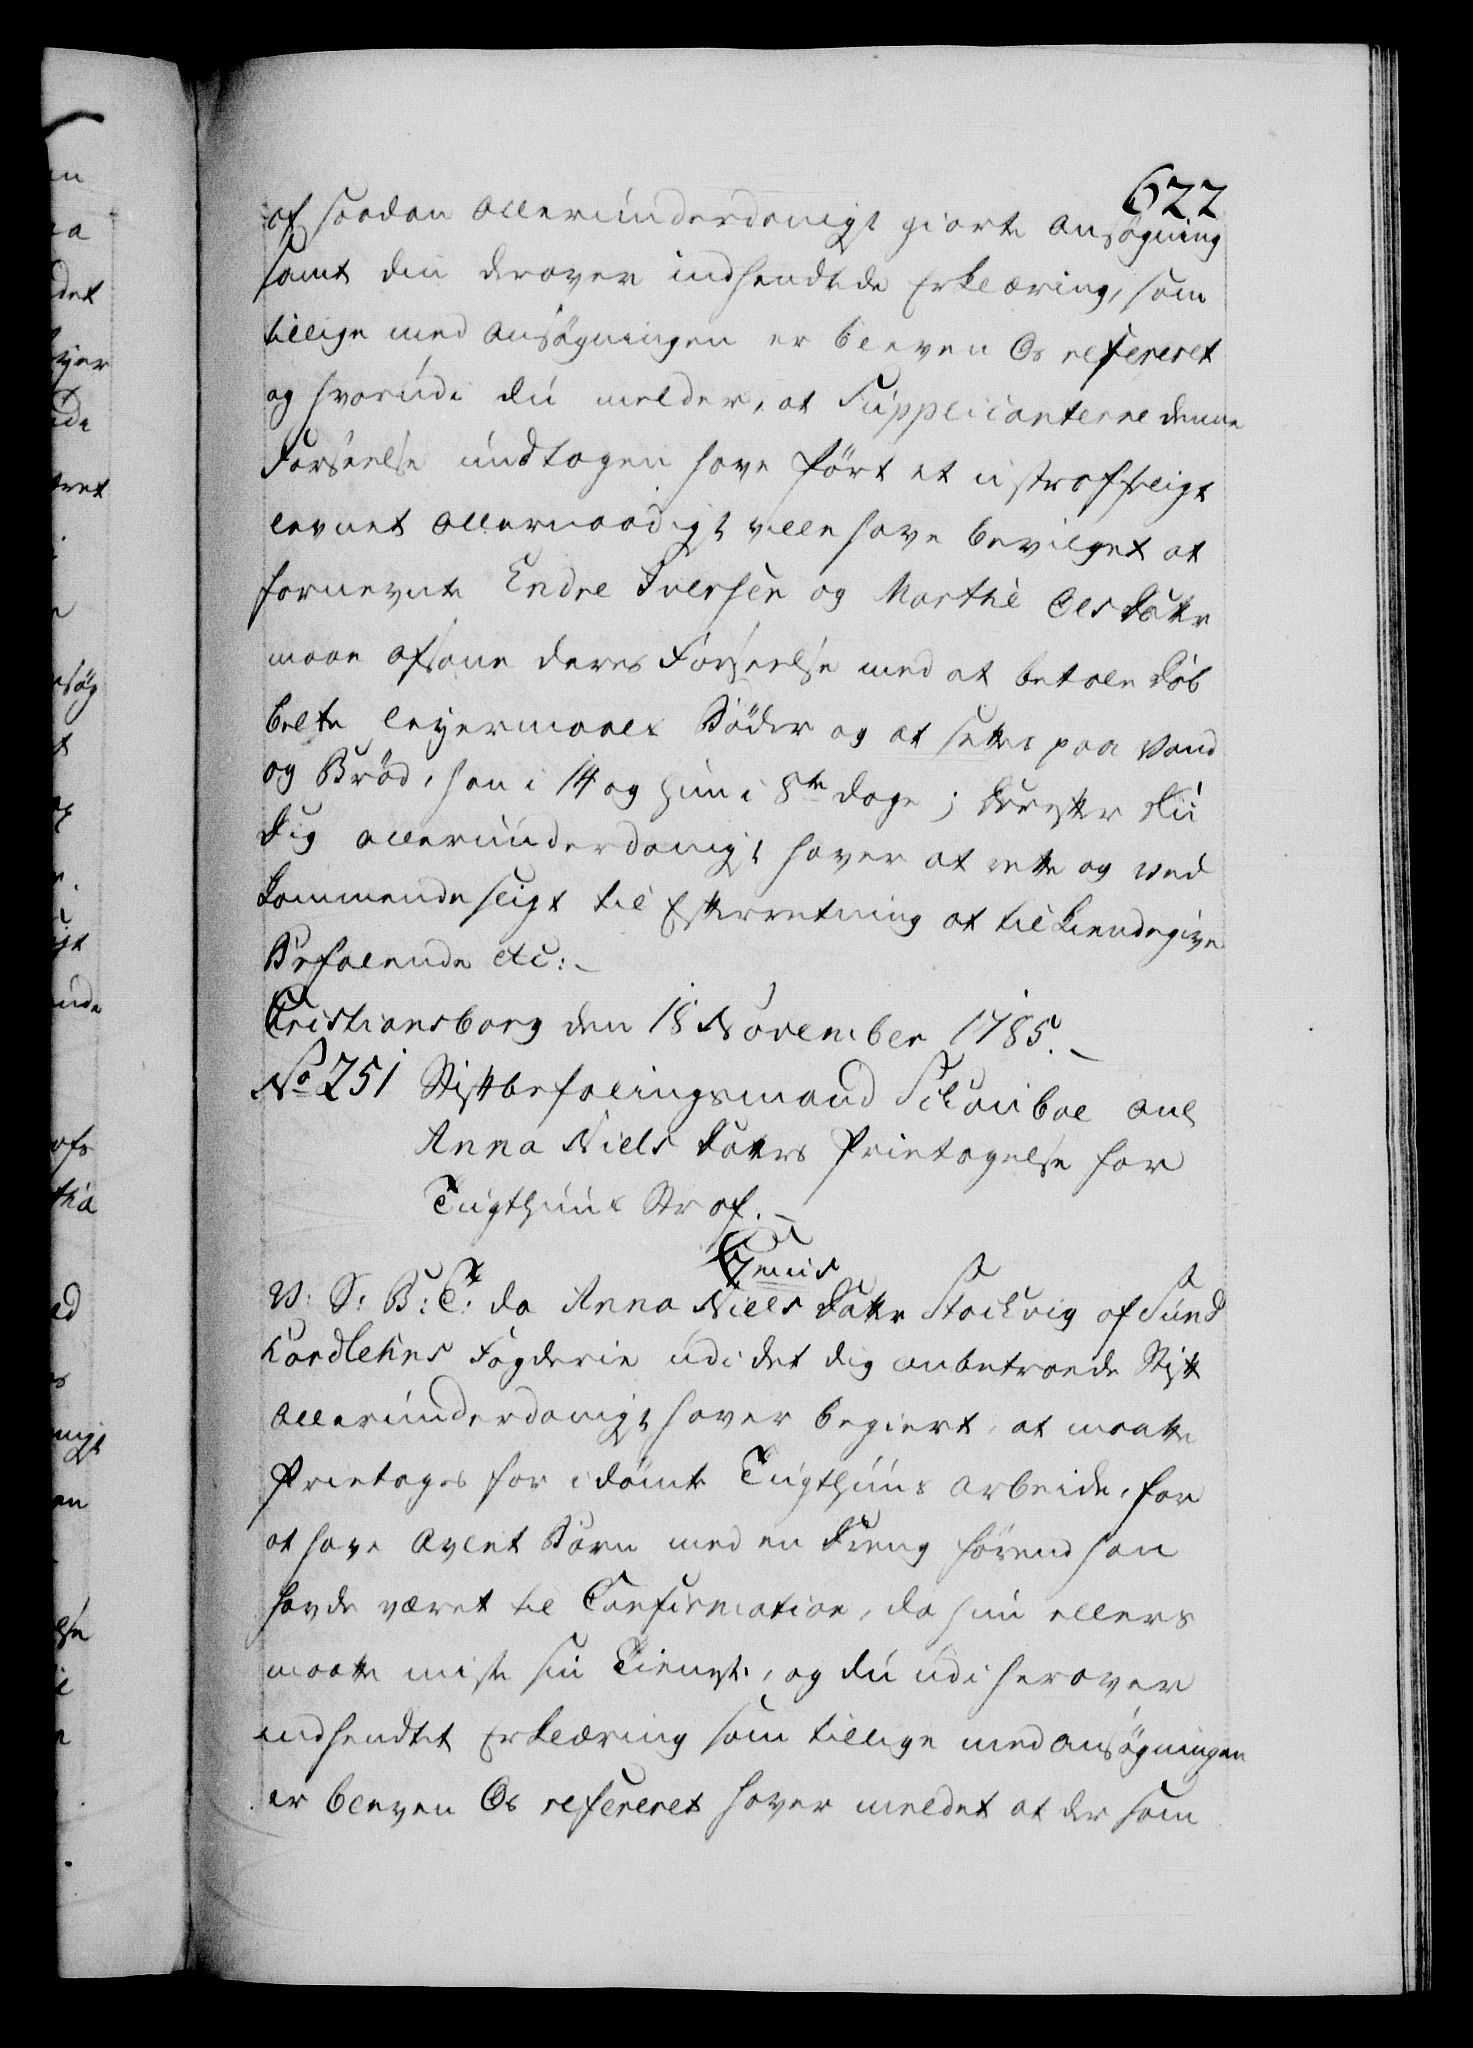 622
af saadan allerunderdanigt giorte Ansøgning
samt din derover indsendte Erklæring, som
tillige med Ansøgningen er bleven Os refereret
og hvorudi du melder, at Supplicanterne denne
Forseelse undtagen have ført et ustraffeligt
levnet allernaadigst ville have bevilget at
fornevnte Endre Iversen og Marthe Olsdatter
maae afsone deres Forseelse med at betale dob
belte leyermaals Bøder og at settes paa Vand
og Brød, han i 14 og hun i 8te dage; derefter du
dig allerunderdanigst haver at rette og ved
kommende sligt til Efterretning at tilkiendegive
Befalende etc:
Cristiansborg den 18 November 1785.
No 251 Stiftbefalingsmand Schouboe anl
Anna Niels datters Fritagelse for
Tugthuus Straf.
Genus
V: S: B: T: da Anna Niels datter Stockvig af Sund
hordlehns Fogderie udi det dig anbetroede Stift
allerunderdanigst haver begiert, at maatte
fritages for idømte Tugthuus arbeide, for
at have avlet Barn med en dreng førend han
havde været til Confirmation, da hun ellers
maatte miste sin Tieneste, og du udi herover
indsendtet Erklæring som tillige med ansøgningen
er bleven Os refereret haver meldet at der som